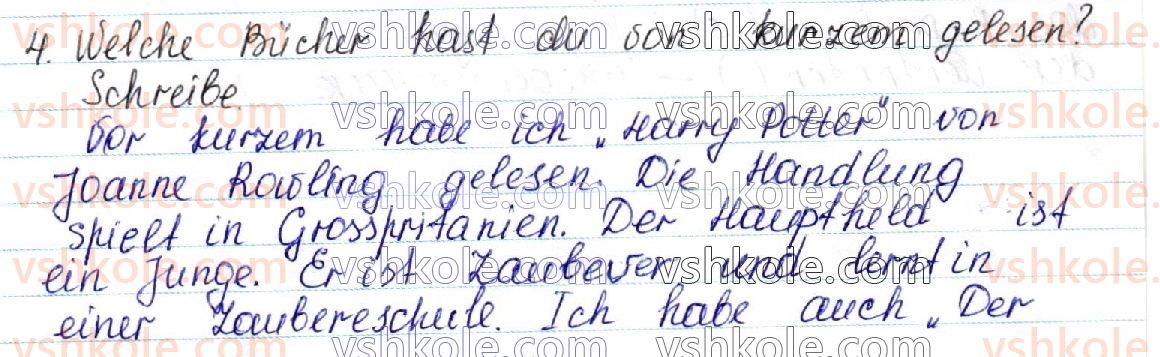 4. Welche Bücher hast du vor kurzem gelesen?
Schreibe.
Vor kurzem habe ich „Harry Potter" von
Joanne Rowling gelesen. Die Handlung
spielt in Grosspritanien. Der Hauptheld ist
ein Junge. Er ist Zauberer und lernt in
einer Zaubereschule. Ich habe auch „Der